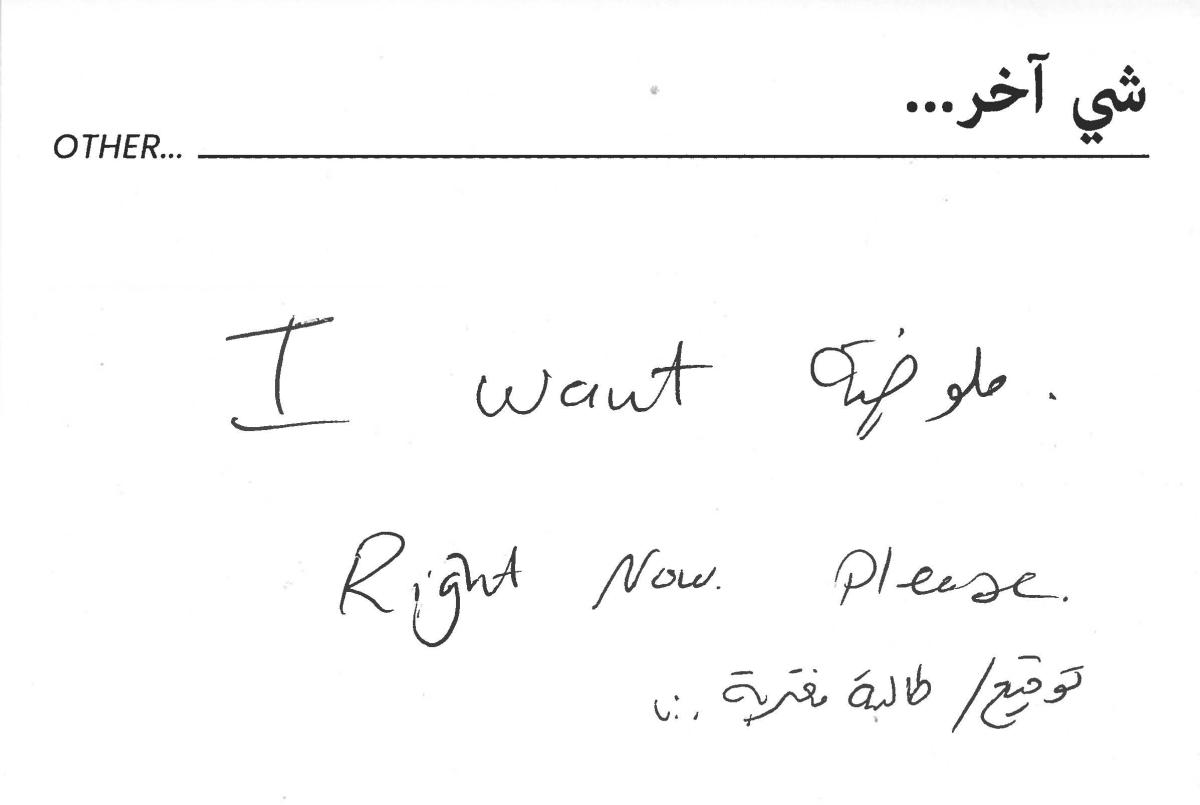 شي آخر...
OTHER...
I want ملوخية.
Right Now. Please.
توقيع / طالبة مغتربة